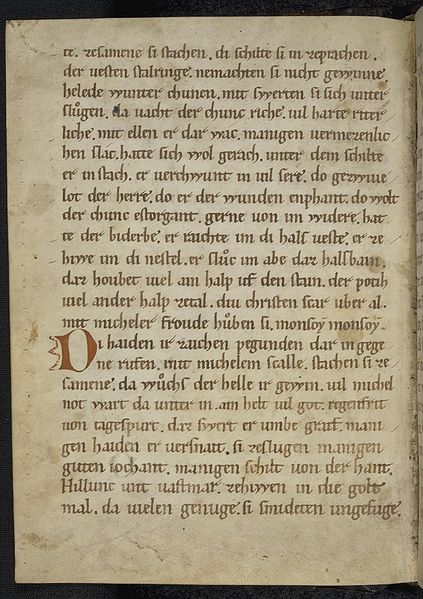 te. zesamene si stachen. di schilte si in zeprachen.
der uesten stalringe. nemachten si nicht gewinne.
helede wunter chunen. mit swerten si sich unter
slůgen. da uacht der chunc riche. uil harte riter
liche. mit ellen er dar wac. manigen uermezenlic
hen slac. hatte sich wol gerach. unter dem schilte
er in stach. er uerchwunt in uil sere. do gezwiue
lot der herre. do er der wunden enphant. do wolt
der chunc estorgant. gerne uon im widere. hat
te der biderbe. er rauchte im di hals ueste. er ze
hiwe im di nestel. er slůc im abe daz halsbain.
daz houbet uiel am halp uf den stain. der potih
uiel ander halp zetal. diu christen scar uber al.
mit micheler froude hůben si. monsoy monsoy.
Di haiden ir zaichen pegunden dar in gege
ne růfen. mit michelem scalle. stachen si ze
samene. da wůchs der helle ir gewin. uil michel
not wart da unter in. ain helt uil got. regenfrit
uon tagespurt. daz swert er umbe graif. mani
gen haiden er uersnait. si zeslugen manigen
guten iochant. manigen schilt uon der hant.
Hillunc unt uastmar. zehiwen in die golt
mal. da uielen genuge. si smideten ungefuge.